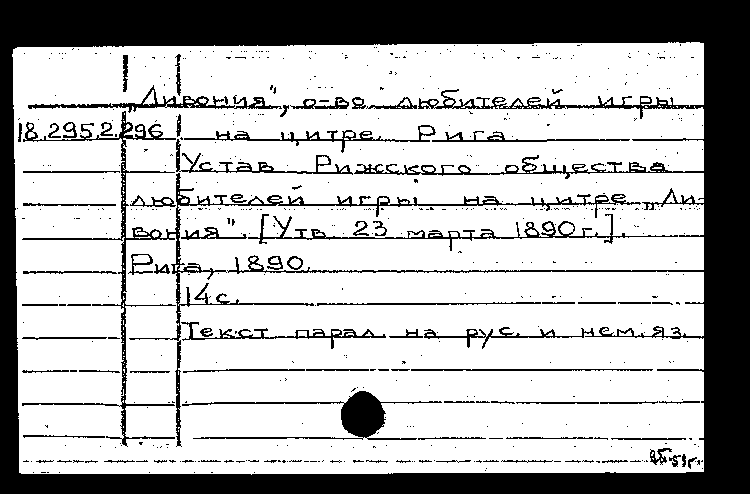 „Ливония", о-во любителей игры
18.295.2.296 на цитре. Рига
Устав Рижского общества
любителей игры на цитре „Ли-
вония". [Утв 23 марта 1890г.].
Рига, 1890.
14с.
Текст парал. на рус. и нем. яз.